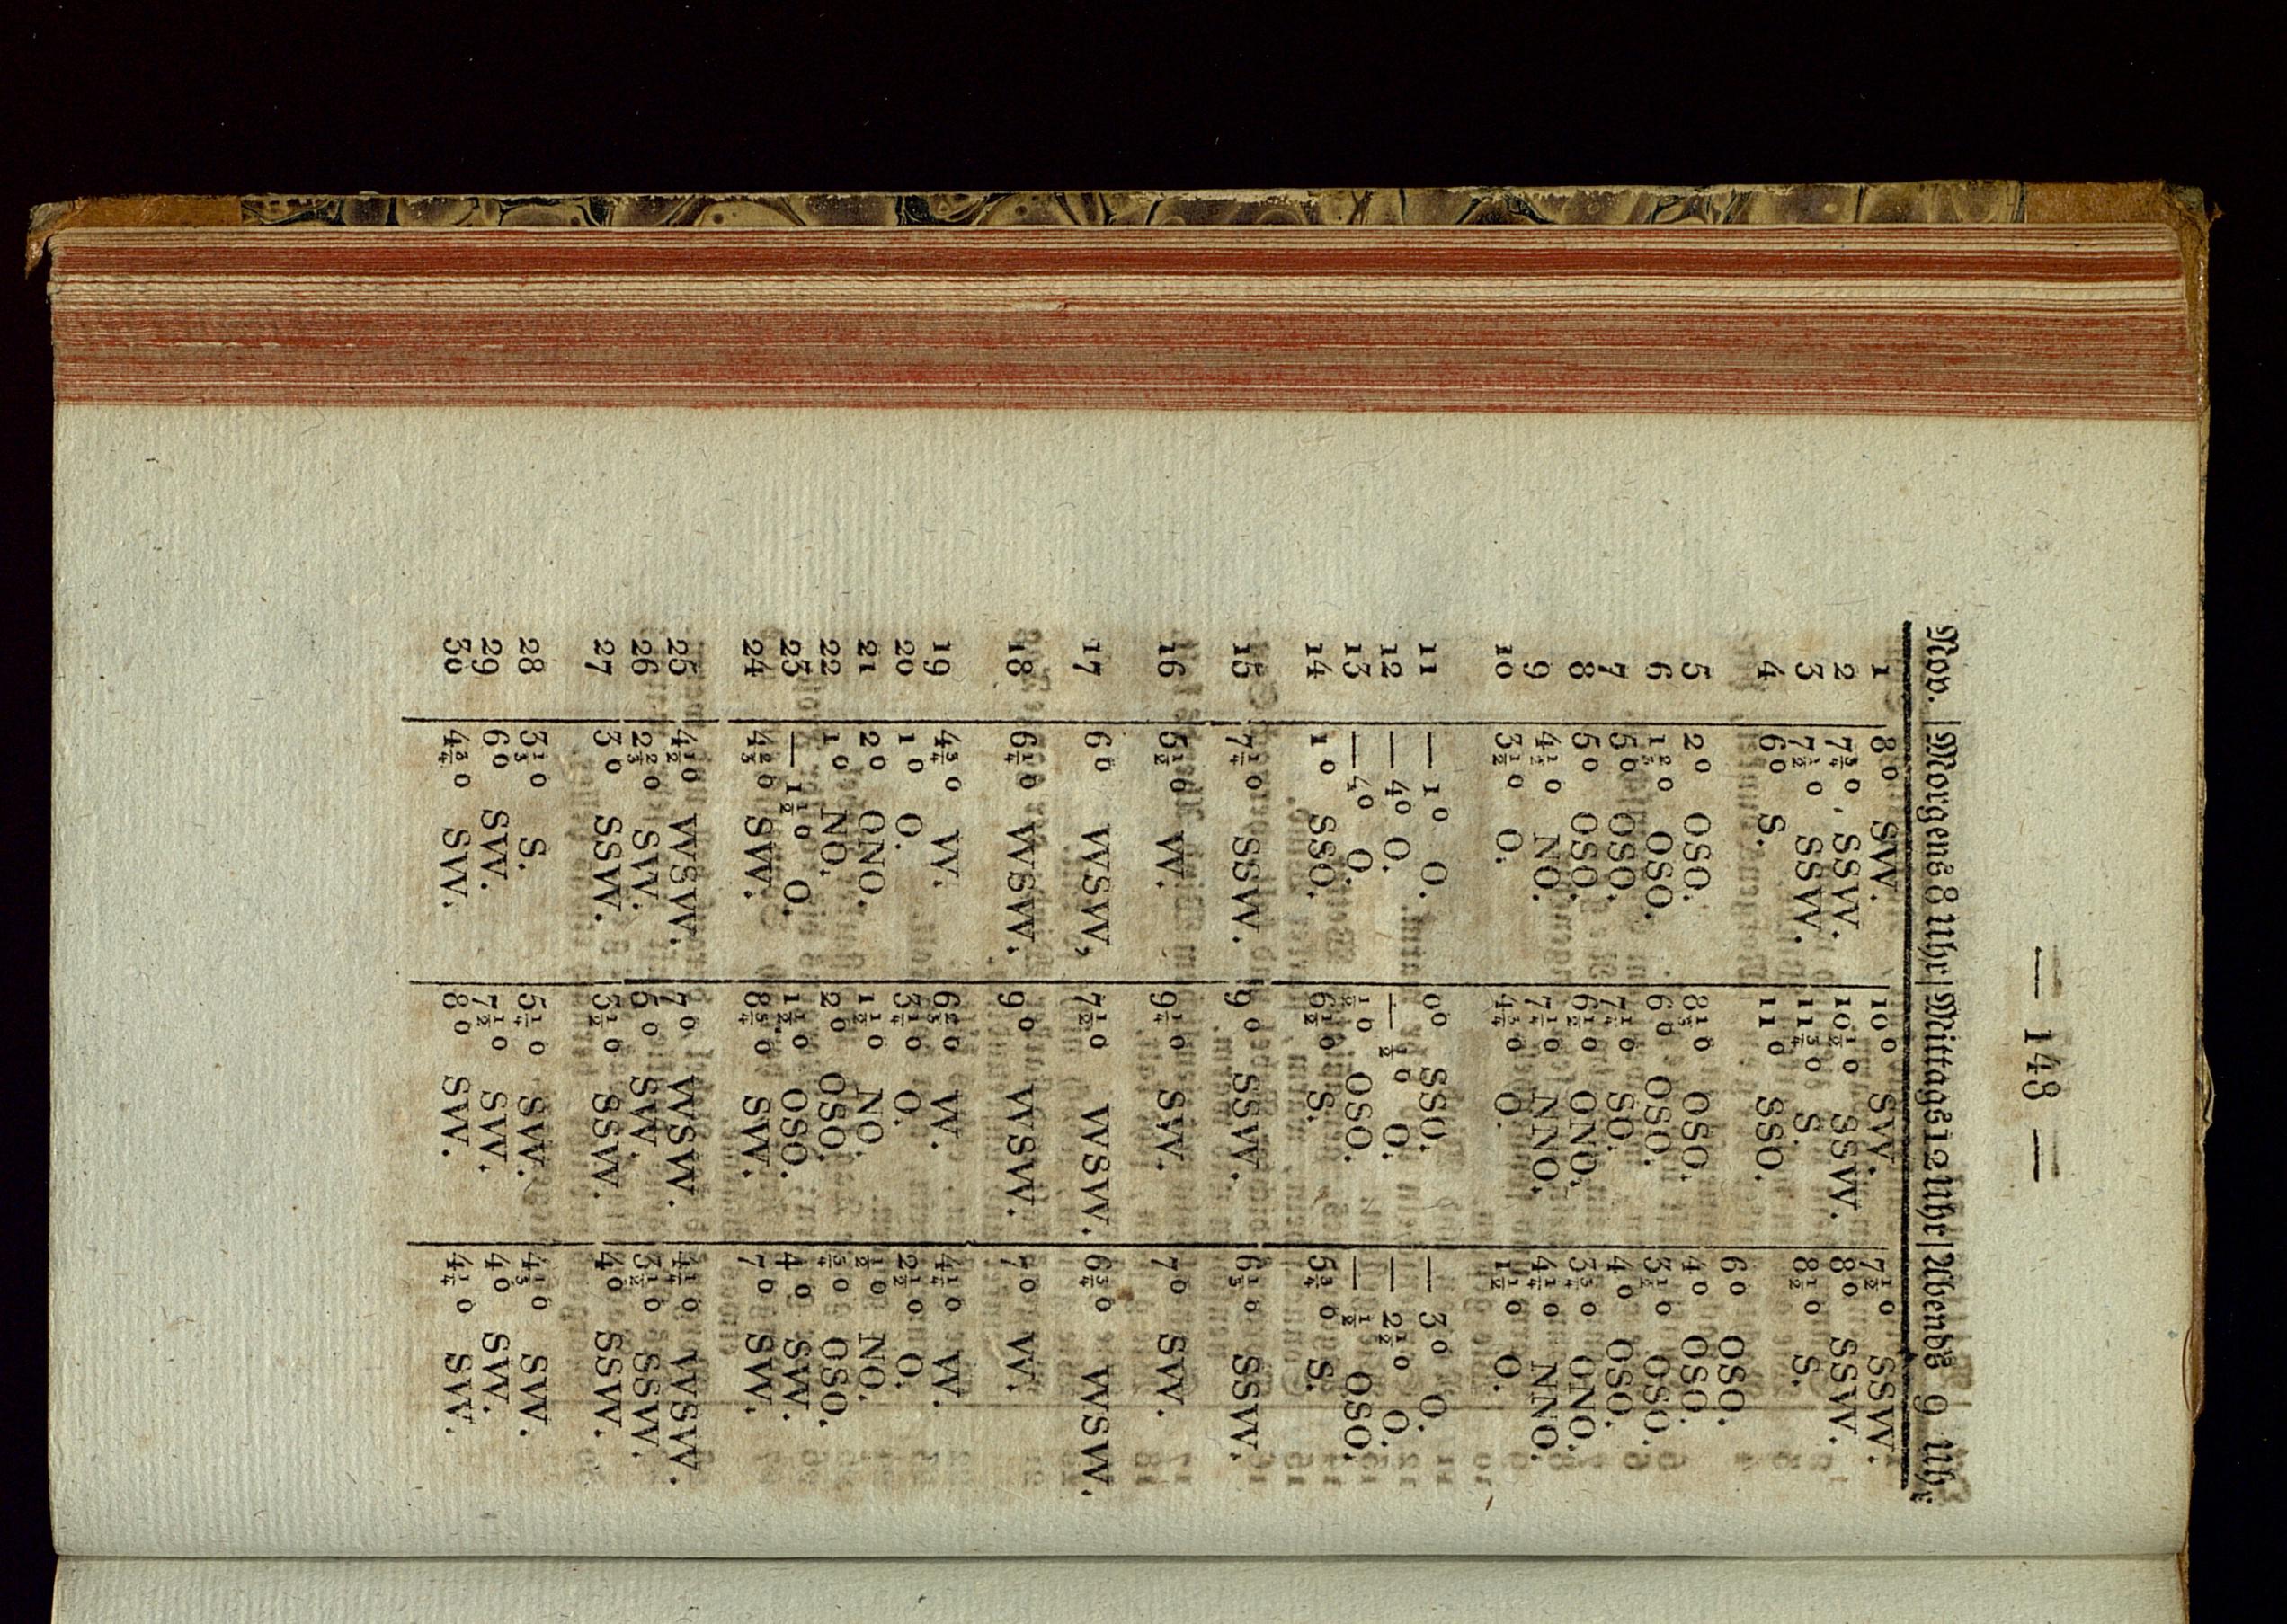 — 148 —
Nov. | Morgens 8 Uhr | Mittags 12 Uhr | Abends 9 Uhr
1 | 8° SW. | 10° SW. | 7½° SSW.
2 | 7¾° SSW. | 10½° SSW. | 8° SSW.
3 | 7½° SSW. | 11¾° S. | 8½° S.
4 | 6° S. | 11° SSO. | 6° OSO.
5 | 2° OSO. | 8⅓° OSO. | 4° OSO.
6 | 1⅔° OSO. | 6° OSO. | 3½° OSO.
7 | 5° OSO. | 7¼° SO. | 4° OSO.
8 | 5° OSO. | 6½° ONO. | 3¾° ONO.
9 | 4½° NO. | 7¼° NNO. | 4¼° NNO.
10 | 3½° O. | 4¾° O. | 1½° O.
11 | — 1° O. | 0° SSO. | — 3° O.
12 | — 4° O. | — ½° O. | — 2½° O.
13 | — 4° O. | ½° OSO. | — ½ OSO.
14 | 1° SSO. | 6½° S. | 5¾° S.
15 | 7¼° SSW. | 9° SSW. | 6⅓° SSW.
16 | 5½° W. | 9¼° SW. | 7° SW.
17 | 6° WSW, | 7½° WSW. | 6¾° WSW.
18 | 6¼° WSW. | 9° WSW. | 7° W.
19 | 4¾° W. | 6⅔° W. | 4¼° W.
20 | 1° O. | 3¼° O. | 2½° O.
21 | 2° ONO. | 1½° NO. | ½° NO.
22 | 1° NO. | 2° OSO. | ¾° OSO.
23 | — 1½° O. | 1½° OSO. | 4° SW.
24 | 4⅔° SW. | 8¾° SW. | 7° SW.
25 | 4½° WSW. | 7° WSW. | 4¼° WSW.
26 | 2⅔° SW. | 6° SW. | 3½° SSW.
27 | 3° SSW. | 5½° SSW. | 4° SSW.
28 | 3⅓° S. | 5¼° SW. | 4⅓° SW.
29 | 6° SW. | 7½° SW. | 4° SW.
30 | 4¾° SW. | 8° SW. | 4¼° SW.